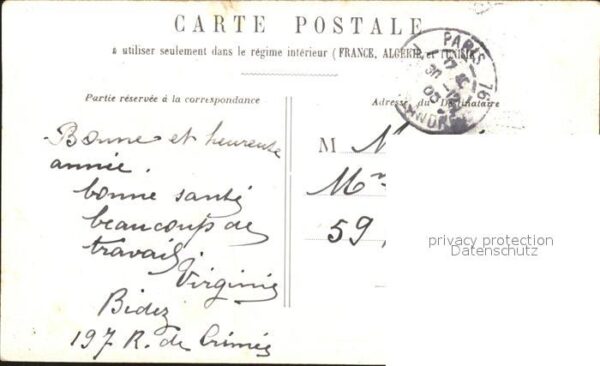 CARTE POSTALE
à utiliser seulement dans le régime intérieur (FRANCE, ALGÉRIE et TUNISIE)
Partie réservée à la correspondance
Adresse du Destinataire
PARIS
Bonne et heureuse
année.
bonne santé
beaucoup de
travail
Virginie
Bidez
197 R. de Crimée
M
59,
privacy protection
Datenschutz